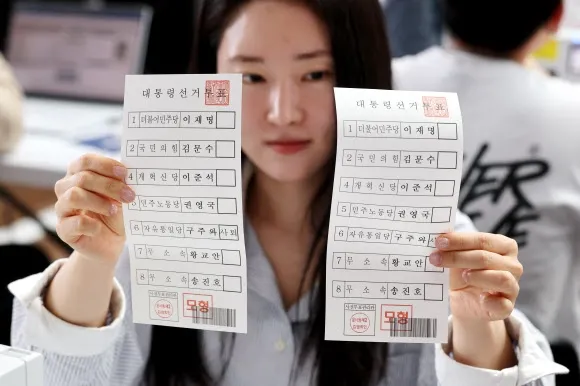 대통령선거투표
1 더불어민주당 이재명
2 국민의힘 김문수
4 개혁신당 이준석
5 민주노동당 권영국
6 자유통일당 구주와 사퇴
7 무소속 황교안
8 무소속 송진호
모형
대통령선거투표
1 더불어민주당 이재명
2 국민의힘 김문수
4 개혁신당 이준석
5 민주노동당 권영국
6 자유통일당 구주와 사퇴
7 무소속 황교안
8 무소속 송진호
모형